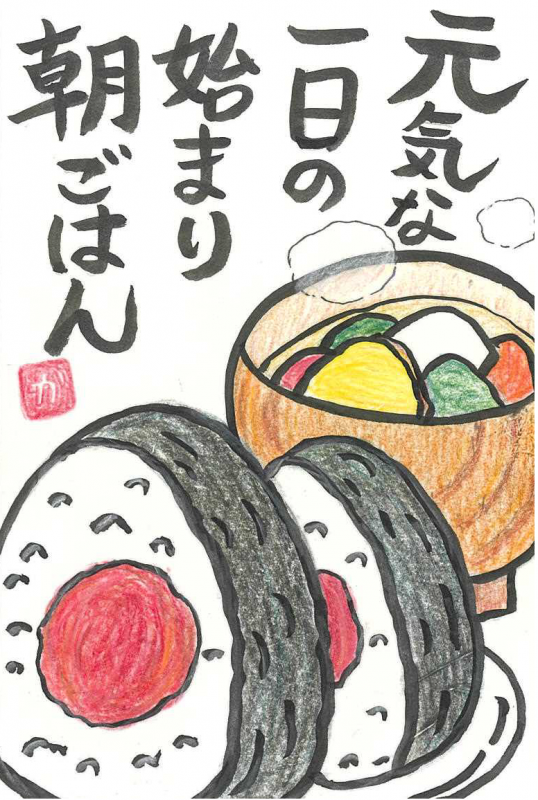 元気な
一日の
始まり
朝ごはん
が